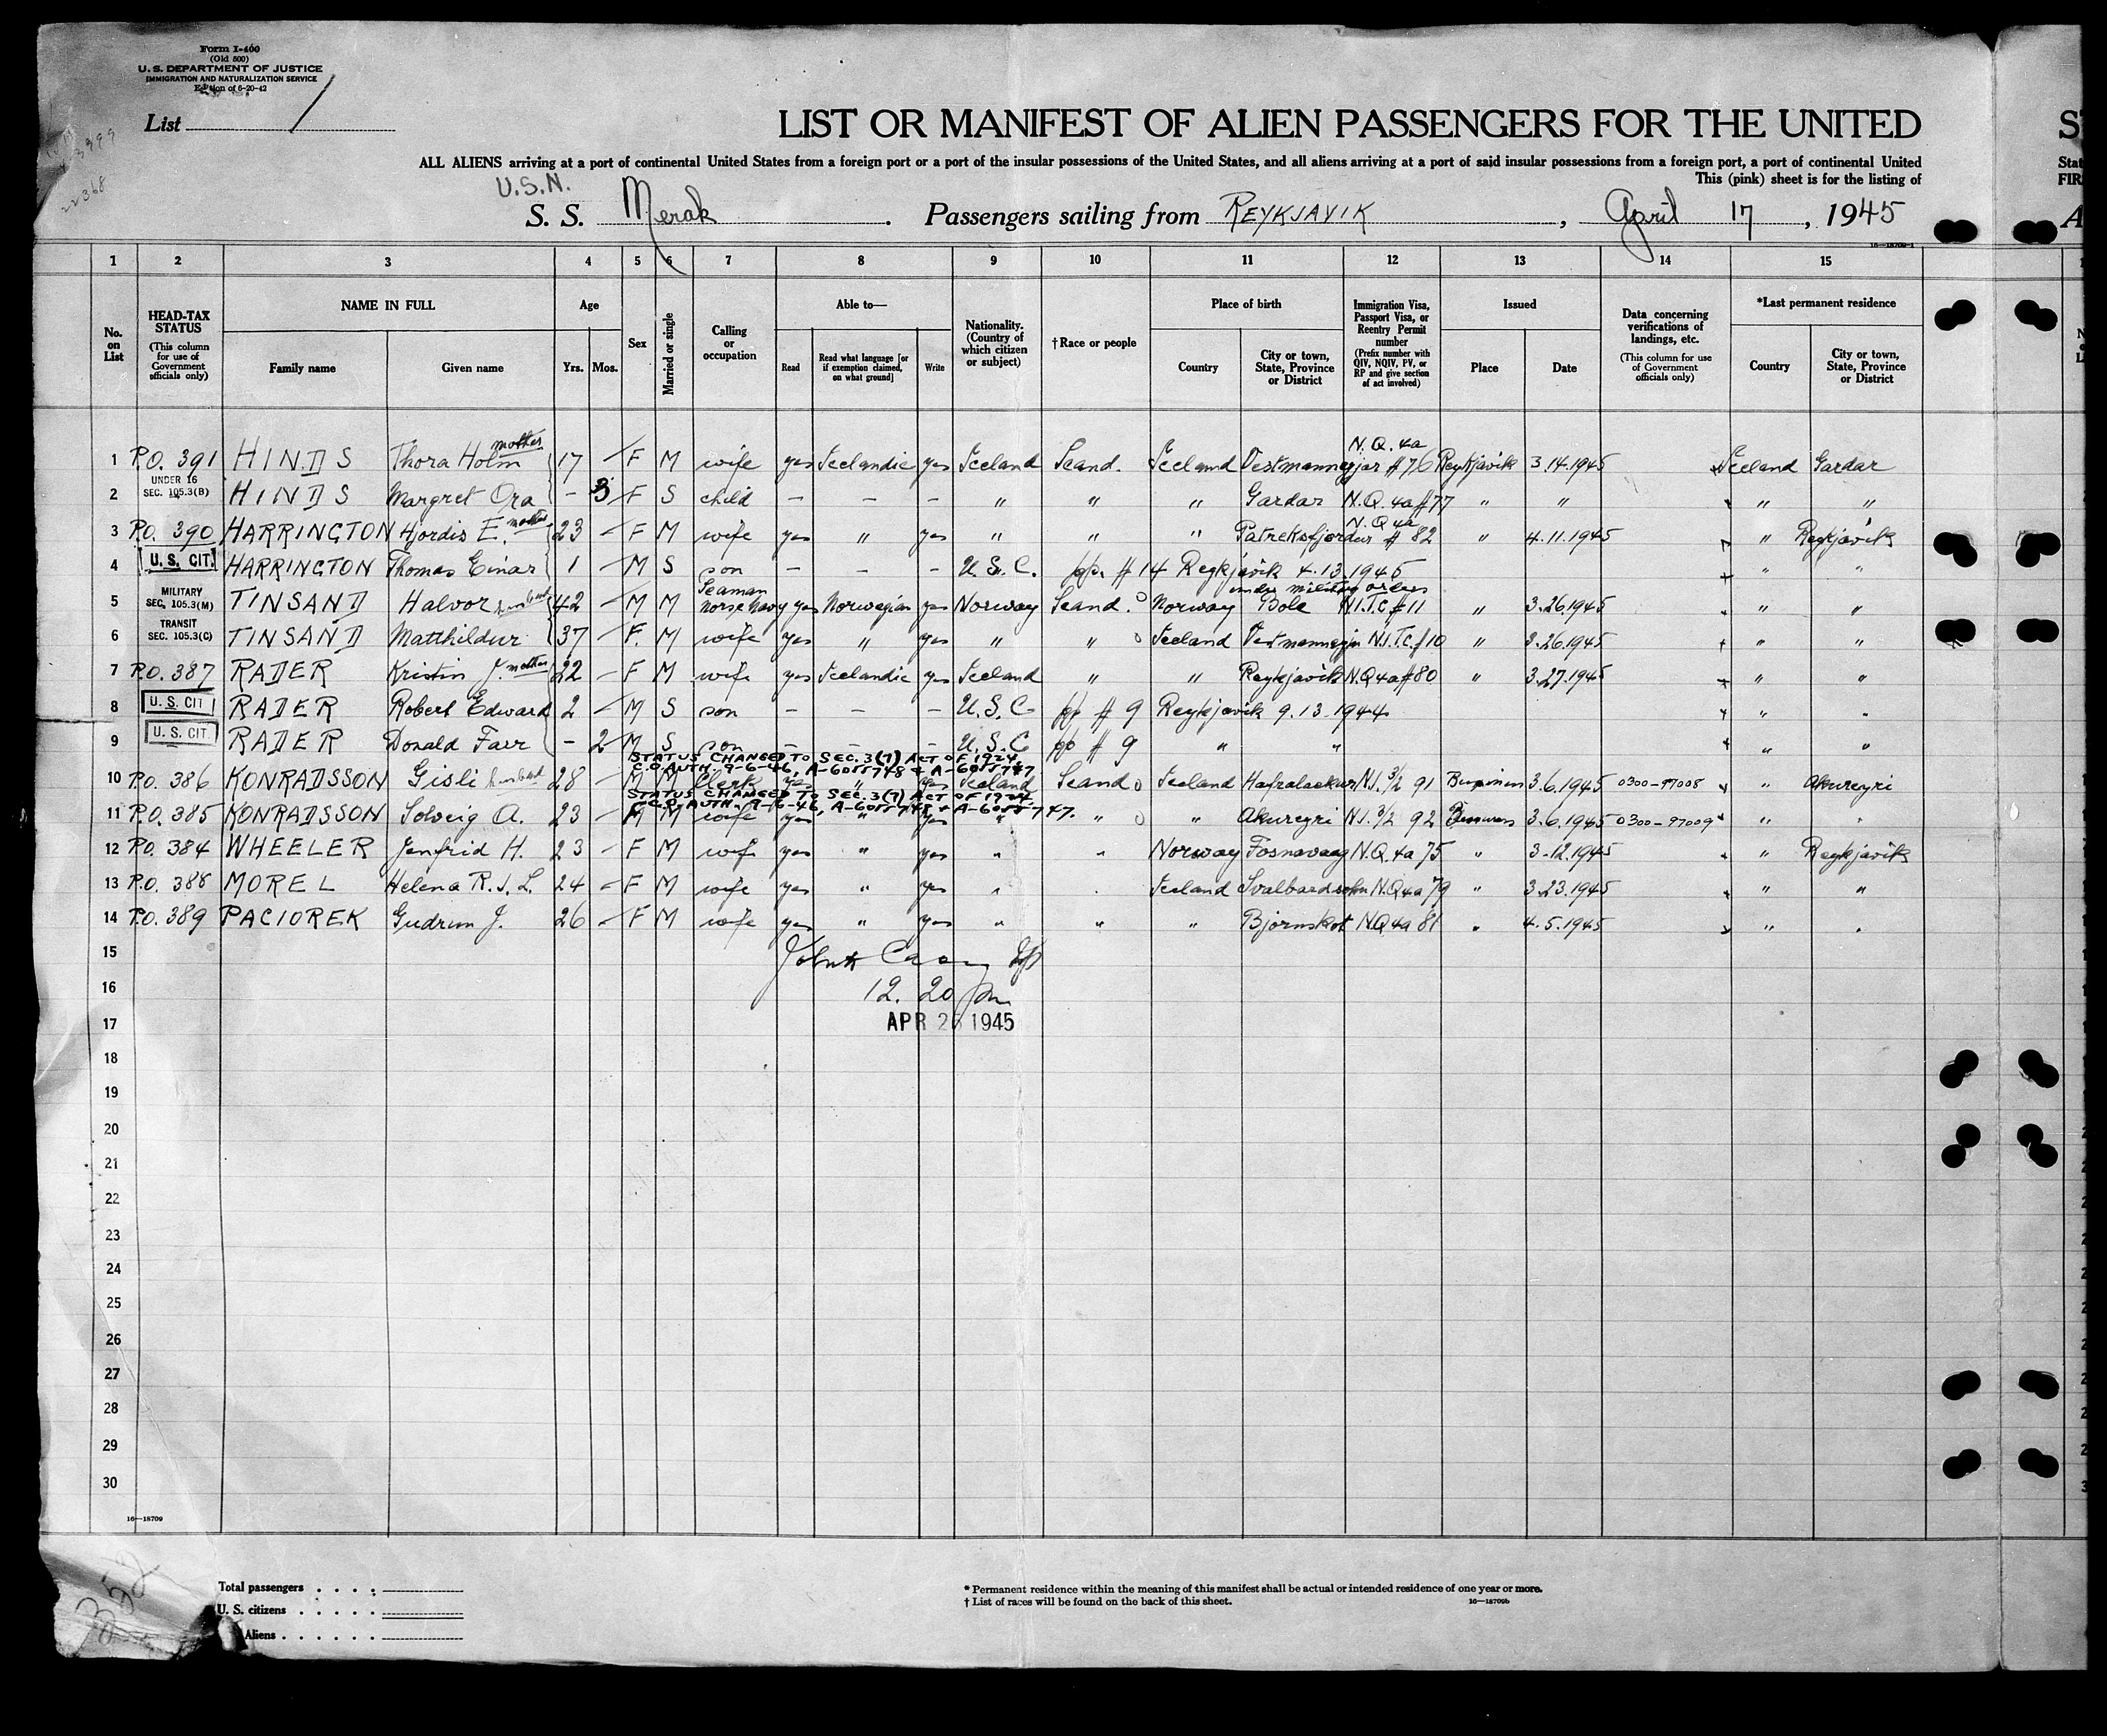 Form I-400
(Old 500)
U. S. DEPARTMENT OF JUSTICE
IMMIGRATION AND NATURALIZATION SERVICE
Edition of 6-20-42
List 1
LIST OR MANIFEST OF ALIEN PASSENGERS FOR THE UNITED
ALL ALIENS arriving at a port of continental United States from a foreign port or a port of the insular possessions of the United States, and all aliens arriving at a port of said insular possessions from a foreign port, a port of continental United
This (pink) sheet is for the listing of
U.S.N.
S. S. Merak. Passengers sailing from REYKJAVIK, April 17, 1945
16—18709-1
1 2 3 4 5 6 7 8 9 10 11 12 13 14 15
No. on List
HEAD-TAX STATUS (This column for use of Government officials only)
NAME IN FULL
Family name Given name
Age
Yrs. Mos.
Sex
Married or single
Calling or occupation
Able to—
Read Read what language [or if exemption claimed, on what ground] Write
Nationality. (Country of which citizen or subject)
†Race or people
Place of birth
Country City or town, State, Province or District
Immigration Visa, Passport Visa, or Reentry Permit number (Prefix number with QIV, NQIV, PV, or RP and give section of act involved)
Issued
Place Date
Data concerning verifications of landings, etc. (This column for use of Government officials only)
*Last permanent residence
Country City or town, State, Province or District
1 P.O. 391 HINDS Thora Holm mother 17 – F M wife yes Icelandic yes Iceland Scand. Iceland Vestmannejjar N.Q. 4a #76 Reykjavik 3.14.1945 Iceland Gardar
2 UNDER 16 SEC. 105.3(B) HINDS Margret Ora – 3 F S child – – – " " " Gardar N.Q. 4a #77 " " " "
3 P.O. 390 HARRINGTON Hjordis E. mother 23 – F M wife yes " yes " " " Patreksfjordur N.Q. 4a # 82 " 4.11.1945 " Reykjavik
4 U. S. CIT. HARRINGTON Thomas Einar 1 – M S son – – – U.S.C. pp. # 14 Reykjavik 4.13.1945 " "
5 MILITARY SEC. 105.3(M) TINSAND Halvor husband 42 – M M Seaman Norse Navy yes Norwegian yes Norway Scand. Norway Bole under military orders N.I.T.C #11 " 3.26.1945 " "
6 TRANSIT SEC. 105.3(C) TINSAND Matthildur 37 – F. M wife yes " yes " " Iceland N.I.T.C. #10 " 3.26.1945 " "
7 P.O. 387 RADER Kristin J. mother 22 – F M wife yes Icelandic yes Iceland " " Reykjavik N.Q 4a #80 " 3.27.1945 " "
8 U. S. CIT RADER Robert Edward 2 – M S son – – – U.S.C pp # 9 Reykjavik 9.13.1944 " "
9 U. S. CIT. RADER Donald Farr – 2 M S son – – – U.S.C pp # 9 " " " "
STATUS CHANGED TO SEC. 3(7) ACT OF 1924
C.O. AUTH. 9-6-46, A-6055748 & A-6055747
10 P.O. 386 KONRADSSON Gisli husband 28 – M M Clerk yes " yes Iceland Scand Iceland N.I. 3/2 91 3.6.1945 0300-97008 " Akureyri
STATUS CHANGED TO SEC. 3(7) ACT OF 1924
C.O. AUTH. 9-6-46, A-6055748 & A-6055747.
11 P.O. 385 KONRADSSON Solveig A. 23 – M wife yes " yes " " " Akureyri N.I. 3/2 92 3.6.1945 0300-97009 " "
12 P.O. 384 WHEELER Jenfrid H. 23 – F M wife yes " yes " " Norway Fosnavaag N.Q. 4a 75 " 3.12.1945 " Reykjavik
13 P.O. 388 MOREL Helena R.J.L. 24 – F M wife yes " yes " " Iceland N.Q 4a 79 " 3.23.1945 " "
14 P.O. 389 PACIOREK Gudrun J. 26 – F M wife yes " yes " " " Bjornskot N.Q 4a 81 " 4.5.1945 " "
15
16 12.20 pm
17 APR 26 1945
18
19
20
21
22
23
24
25
26
27
28
29
30
16—18709
352
Total passengers
U. S. citizens
Aliens
* Permanent residence within the meaning of this manifest shall be actual or intended residence of one year or more.
† List of races will be found on the back of this sheet.
16—18709b